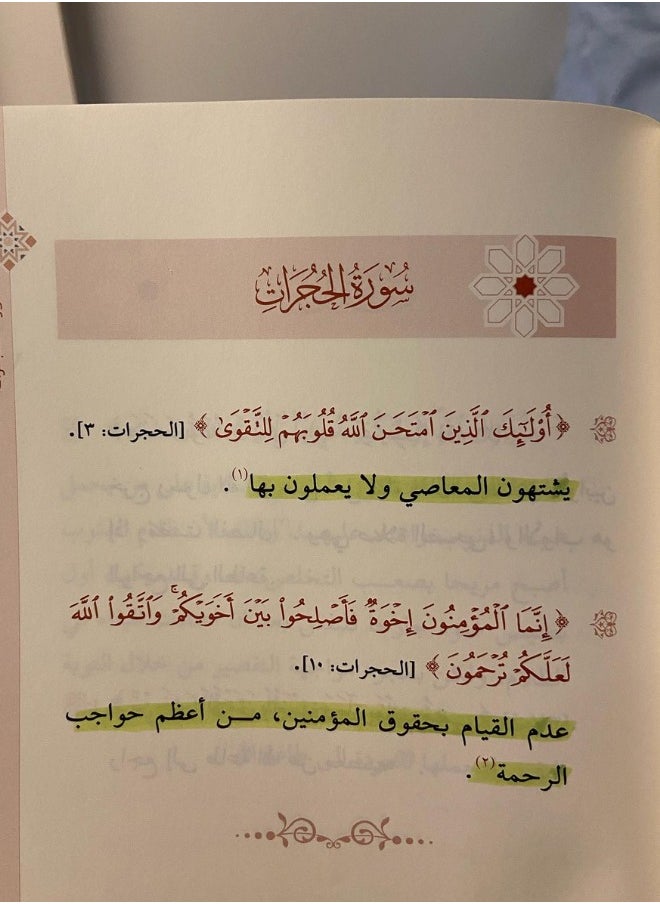 سُورَةُ الحُجُرَاتِ
﴿ أُوْلَٰٓئِكَ ٱلَّذِينَ ٱمۡتَحَنَ ٱللَّهُ قُلُوبَهُمۡ لِلتَّقۡوَىٰ ﴾ [الحجرات: ٣].
يشتهون المعاصي ولا يعملون بها(١).
﴿ إِنَّمَا ٱلۡمُؤۡمِنُونَ إِخۡوَةٞ فَأَصۡلِحُواْ بَيۡنَ أَخَوَيۡكُمۡۚ وَٱتَّقُواْ ٱللَّهَ
لَعَلَّكُمۡ تُرۡحَمُونَ ﴾ [الحجرات: ١٠].
عدم القيام بحقوق المؤمنين، مـن أعظم حواجب
الرحمة(٢).